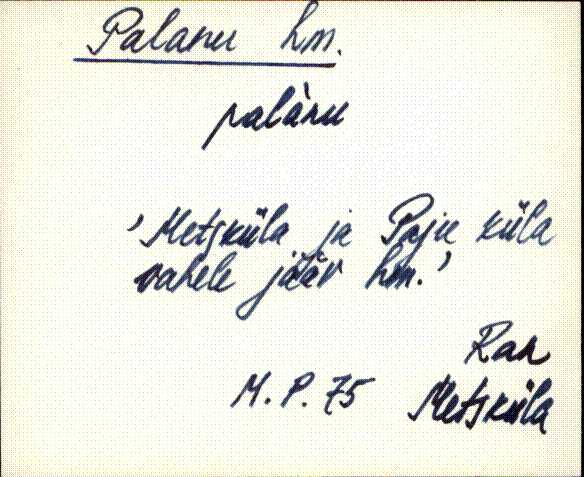 Palanu hm.
palànu
'Metsküla ja Paju küla
vahele jääv hm.'
Ran
M. P. 75 Metsküla